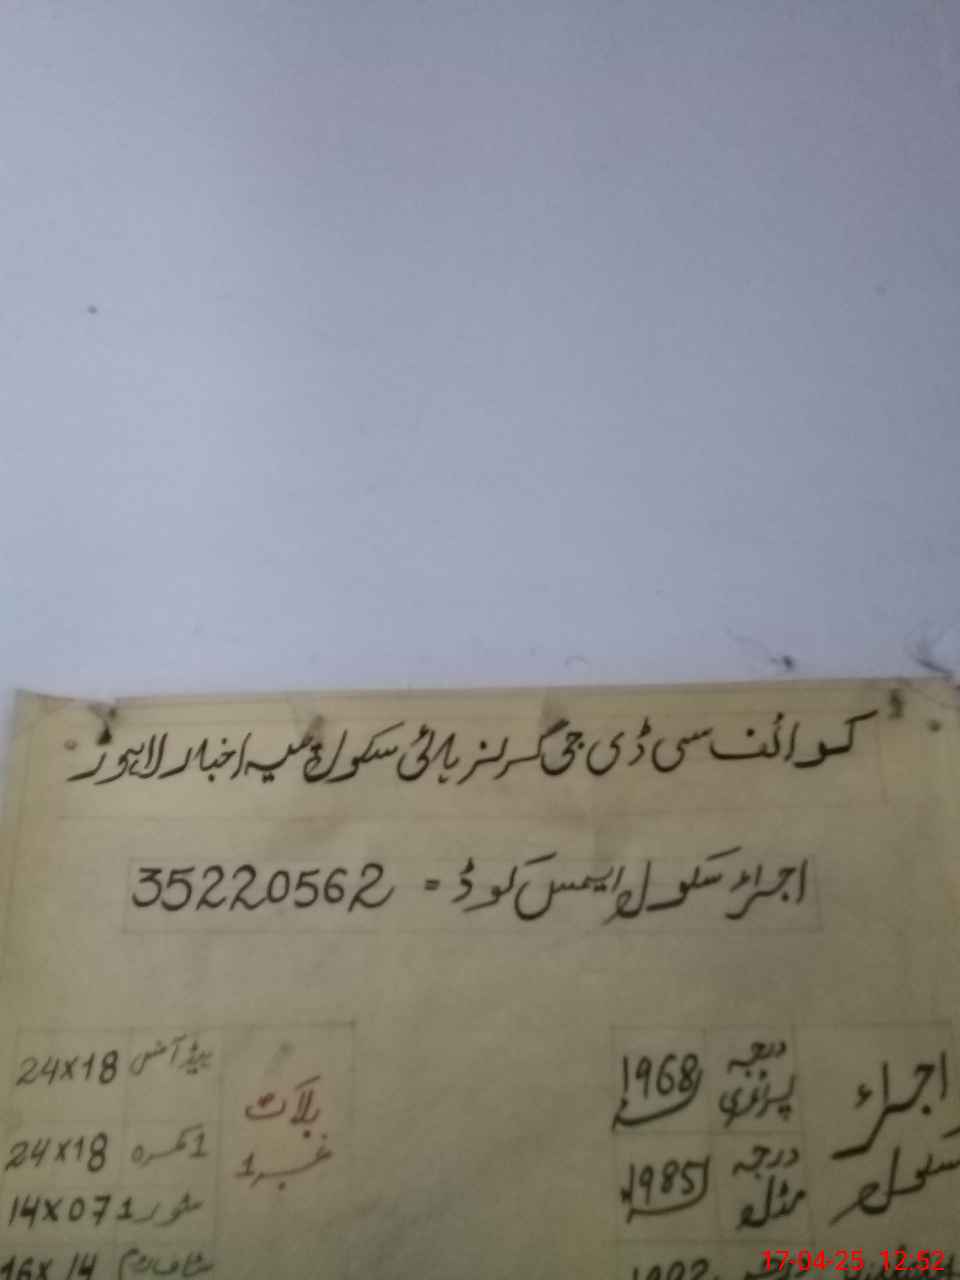 کوائف سی ڈی جی گرلز ہائی سکول پیسہ اخبار لاہور
اجراء سکول ایمس کوڈ = 35220562
اجراء سکول
درجہ پرائمری 1968
درجہ مڈل 1985
بلاک نمبر 1
ہیڈ آفس 24x18
1 کمرہ 24x18
سٹور 1 14x07
سٹاف روم 16x14
17-04-25 12:52